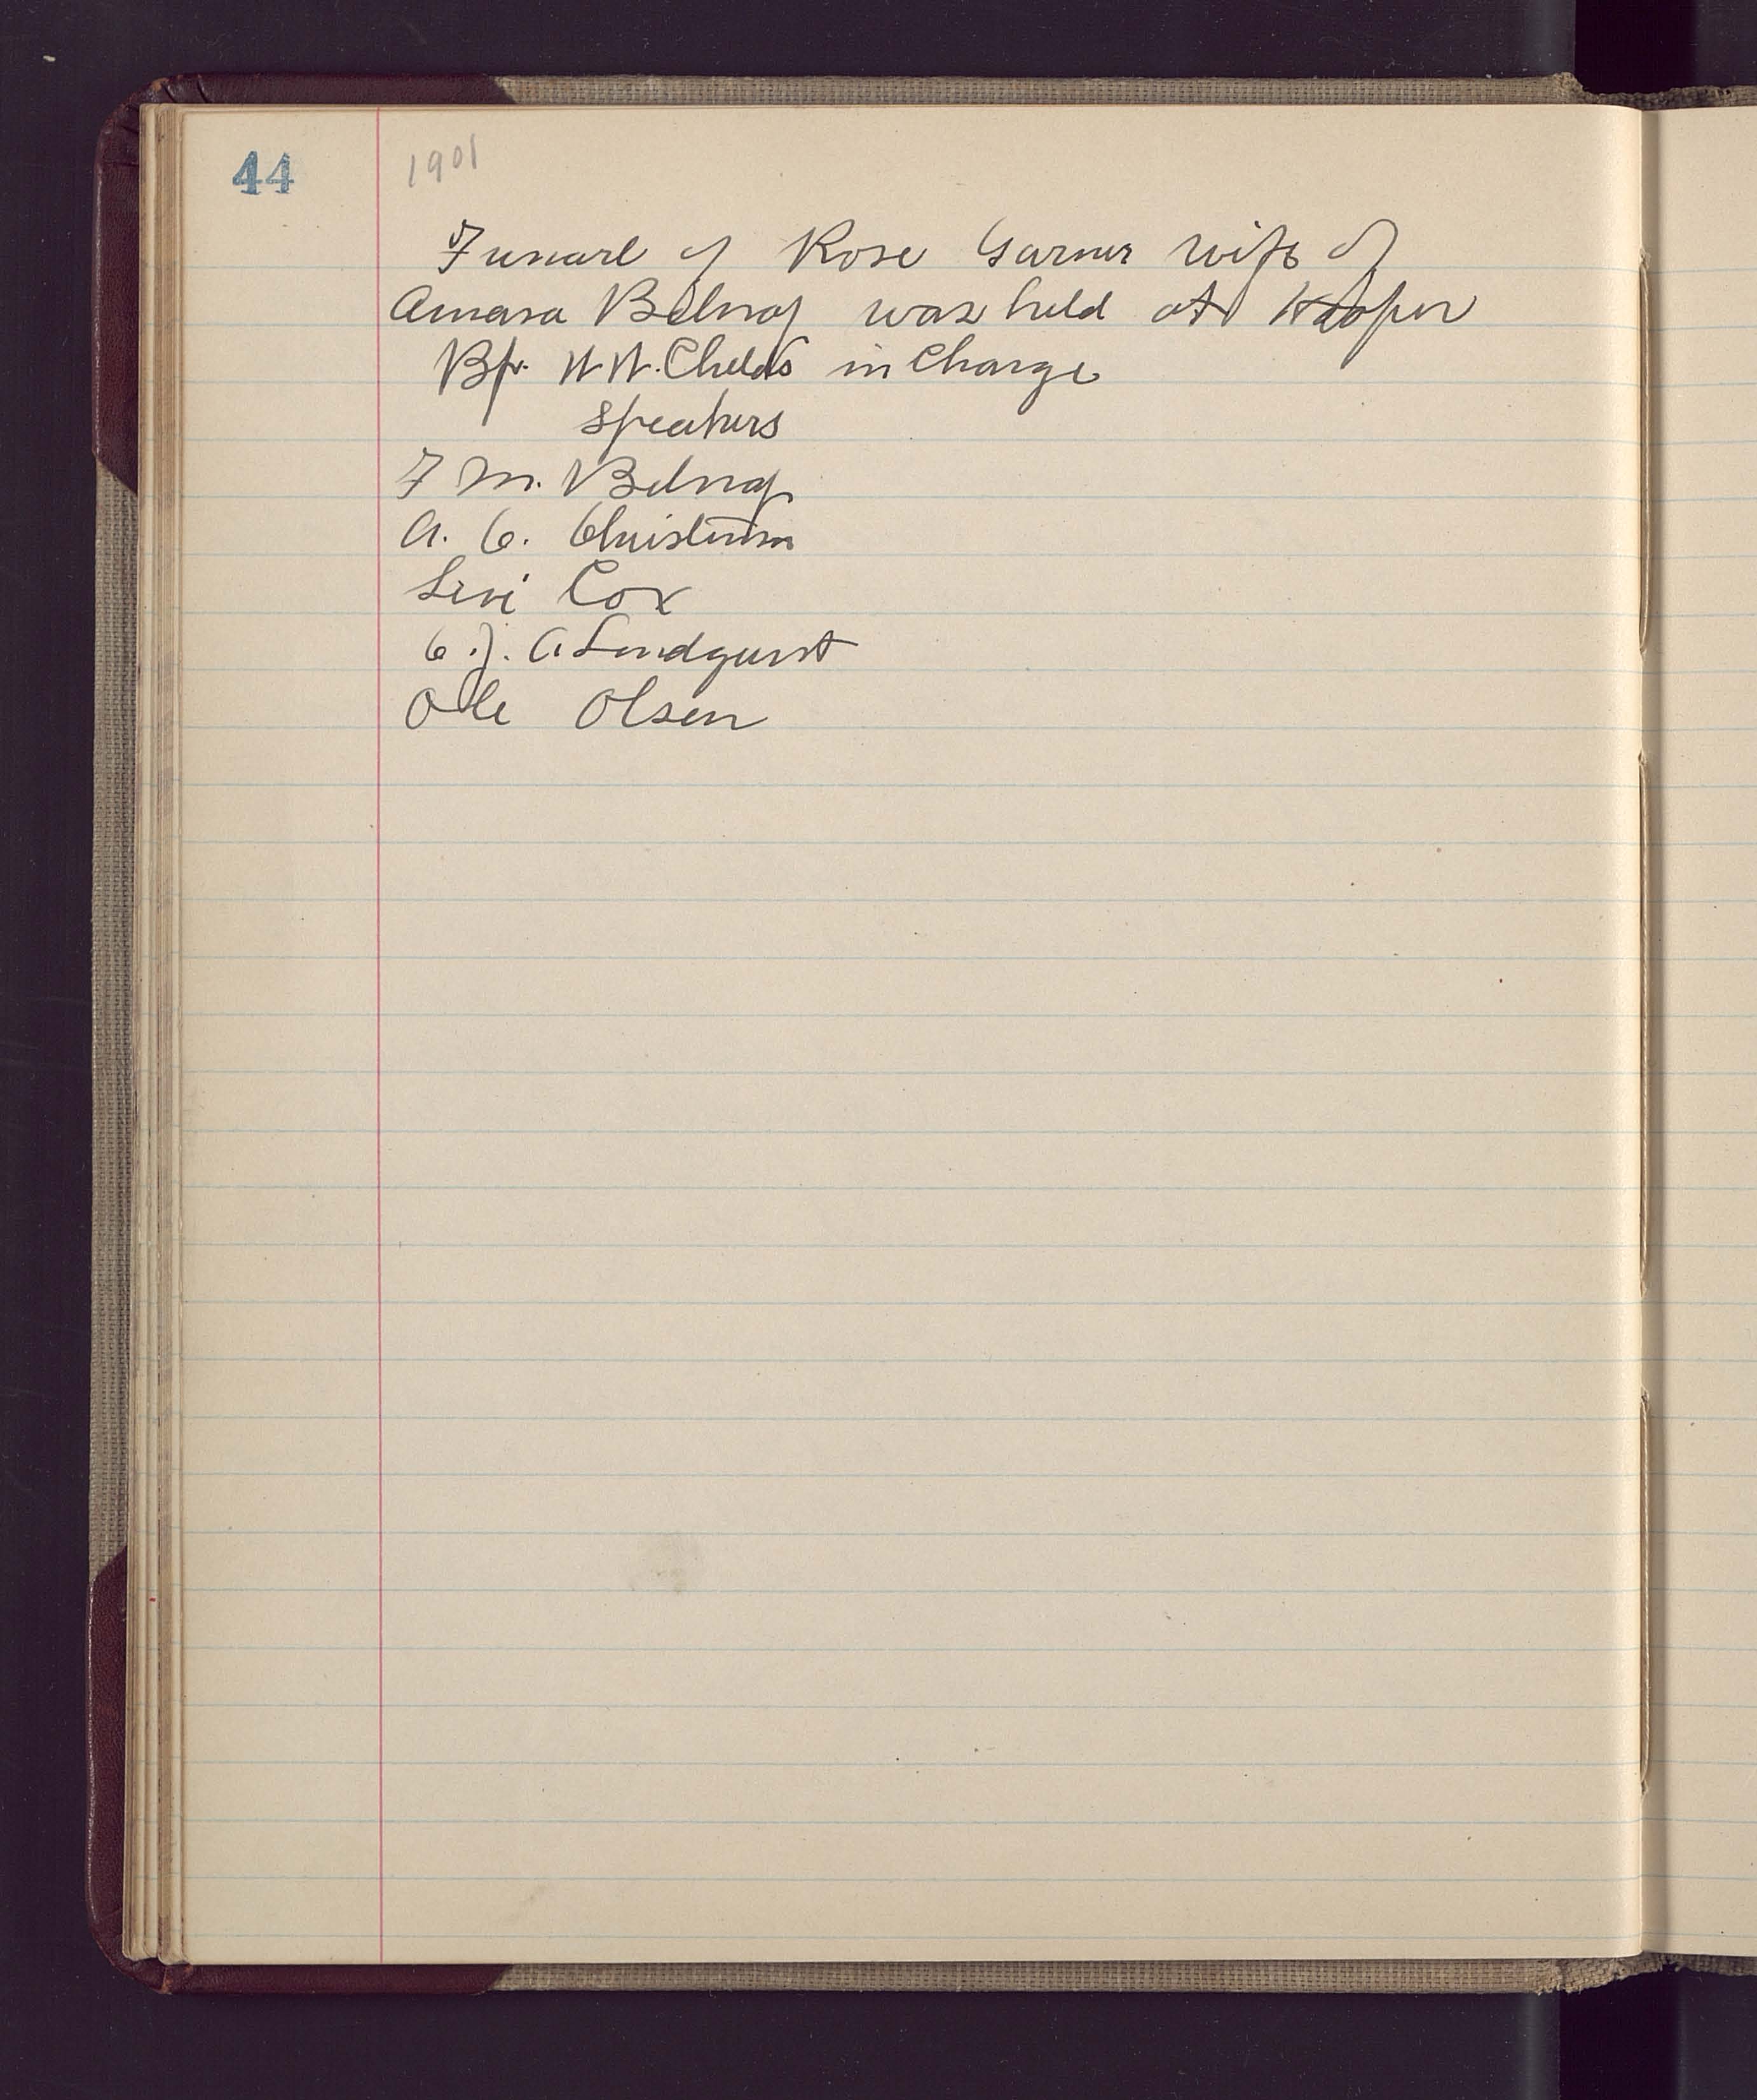 44
1901
Funarl of Rose Garner wife of
Amasa Belnap was held at Hooper
Bp. W.W. Childs in Charge
speakers
F M. Belnap
A. C. Christensen
Levi Cox
C. J. A Lindquist
Ole Olsen